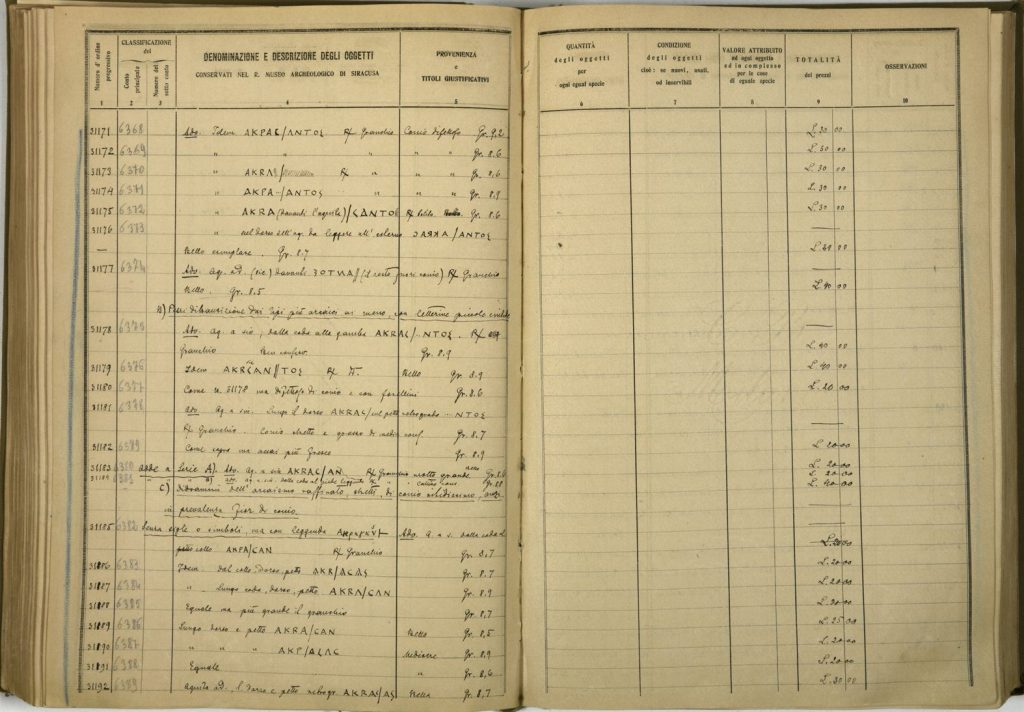 Numero d'ordine progressivo
CLASSIFICAZIONE del
Conto principale
Numero del sotto conto
DENOMINAZIONE E DESCRIZIONE DEGLI OGGETTI
CONSERVATI NEL R. MUSEO ARCHEOLOGICO DI SIRACUSA
PROVENIENZA e TITOLI GIUSTIFICATIVI
QUANTITÀ degli oggetti per ogni egual specie
CONDIZIONE degli oggetti cioè: se nuovi, usati, od inservibili
VALORE ATTRIBUTO ad ogni oggetto ed in complesso per le cose di eguale specie
TOTALITÀ dei prezzi
OSSERVAZIONI
1 2 3 4 5 6 7 8 9 10
31171 6368 Ado. Idem AKPAC/ANTOS R/ Granchio Conio difettoso Gr. 9.2 L. 30 00
31172 6369 " " " " Gr. 8.6 L. 30 00
31173 6370 " AKRA/ R/ " " " Gr. 8.6 L. 30 00
31174 6371 " AKPA/ANTOS " " " Gr. 8.9 L. 30 00
31175 6372 " AKRA (davanti l'aquila)/CANTOS R/ Gr. 8.6 L. 30 00
31176 6373 " nel dorso dell'aq. da leggere all'esterno /ANTOS
Bello esemplare. Gr. 8.7 00
31177 6374 Ado. Aq. a d. (sic) davanti (il resto fuori conio) R/ Granchio
Bello. Gr. 8.5 L. 40 00
B) di transizione dai tipi più arcaici ai meno, con letterine piccole
31178 6375 Ado. Aq. a sin., dalla coda alle gambe AKRAC/NTOS R/
Granchio Ben conserv. Gr. 8.9 L. 40 00
31179 6376 Idem R/ Bello Gr. 8.9 L. 40 00
31180 6377 Come n. 31178 ma difettoso di conio e con forellini Gr. 8.6 L. 20 00
31181 6378 Ado. Aq. a sin. Lungo il dorso AKRAC/ sul petto retrogrado NTOS
R/ Granchio. Conio stretto e grosso di media conf. Gr. 8.7
31182 Come sopra ma assai più grosso Gr. 8.9 L. 20 00
31183 6380 adde a Serie A). Ado. Aq. a sin AKRAC/AN R/ Granchio molto grande Gr. 8.6 L. 20 00
31184 L. 20 00
C) Didrammi dell'arcaismo raffinato, stretti, di conio nitidissimo,
in prevalenza fior di conio. L. 40 00
31185 6382 Senza sigle o simboli, ma con leggenda Ado. A. a s. dalla coda al
collo AKPA/CAN R/ Granchio Gr. 8.7 L. 20 00
31186 6383 Idem dal collo dorso, petto AKR/ACAS Gr. 8.7 L. 20 00
31187 6384 " Lungo coda, dorso, petto AKRA/CAN Gr. 8.9 L. 20 00
31188 6385 Eguale ma più grande il granchio Gr. 8.7 L. 20 00
31189 6386 Lungo dorso e petto AKRA/CAN Bello Gr. 8.5 L. 25 00
31190 6387 " " " " Mediocre Gr. 8.9 L. 20 00
31191 6388 Eguale " Gr. 8.6 L. 20 00
31192 6389 Aquila a d. l. dorso e petto retrogr. AKRAC/AS Bella Gr. 8.7 L. 30 00